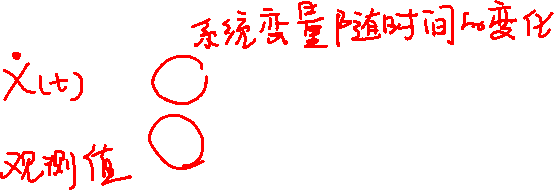 系统变量随时间的变化
Ẋ(t)
观测值